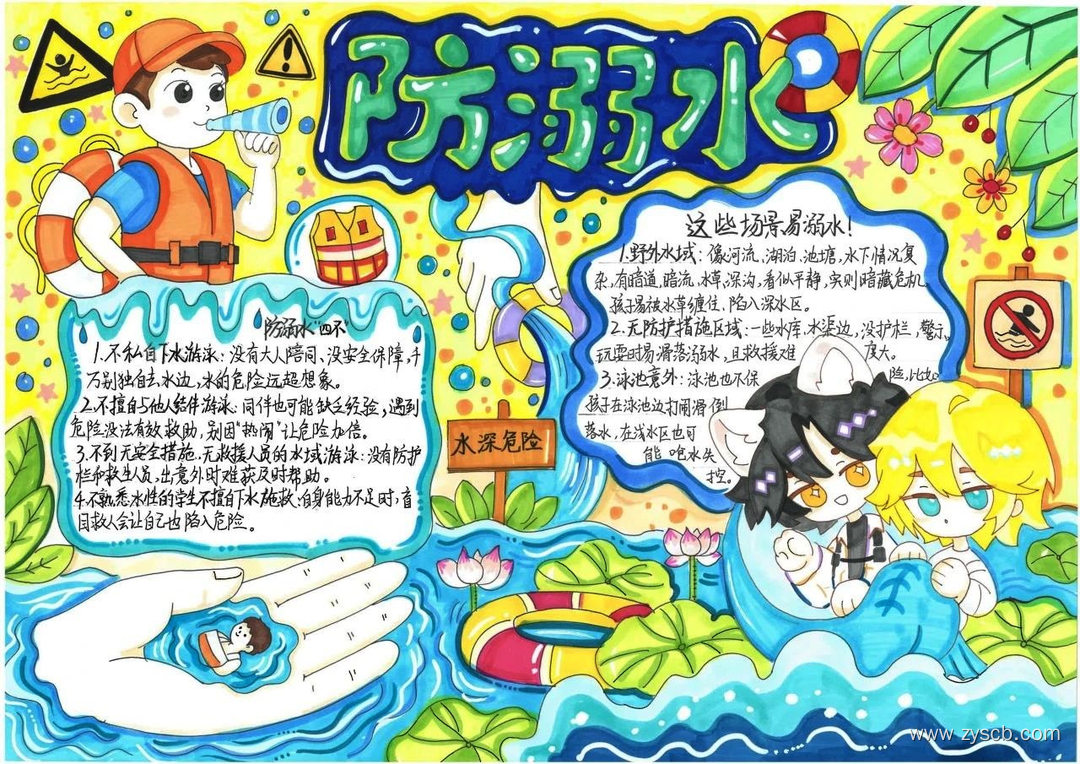 防溺水
防溺水"四不"
1.不私自下水游泳：没有大人陪同、没安全保障，千
万别独自去水边，水的危险远超想象。
2.不擅自与他人结伴游泳：同伴也可能缺乏经验，遇到
危险没法有效救助，别因"热闹"让危险加倍。
3.不到无安全措施、无救援人员的水域游泳：没有防护
栏和救生员，出意外时难获及时帮助。
4.不熟悉水性的学生不擅自下水施救：自身能力不足时，盲
目救人会让自己也陷入危险。
这些场景易溺水！
1.野外水域：像河流、湖泊、池塘，水下情况复
杂，有暗道、暗流、水草、深沟，看似平静，实则暗藏危机，
孩子易被水草缠住、陷入深水区。
2.无防护措施区域：一些水库、水渠边，没护栏、警示，
玩耍时易滑落溺水，且救援难 度大。
3.泳池意外：泳池也不保 险，比如
孩子在泳池边打闹滑倒
落水，在浅水区也可
能呛水失
控。
水深危险
www.zyscb.com